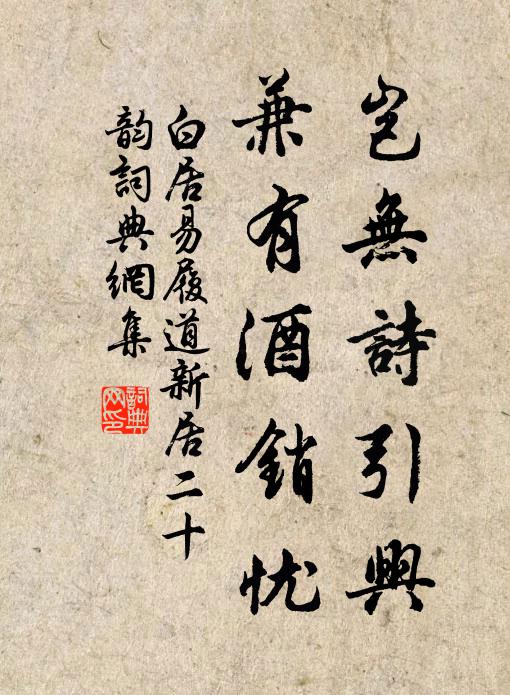 豈無詩引興
兼有酒銷忧
白居易履道新居二十
韵詞典網集
詞典网印